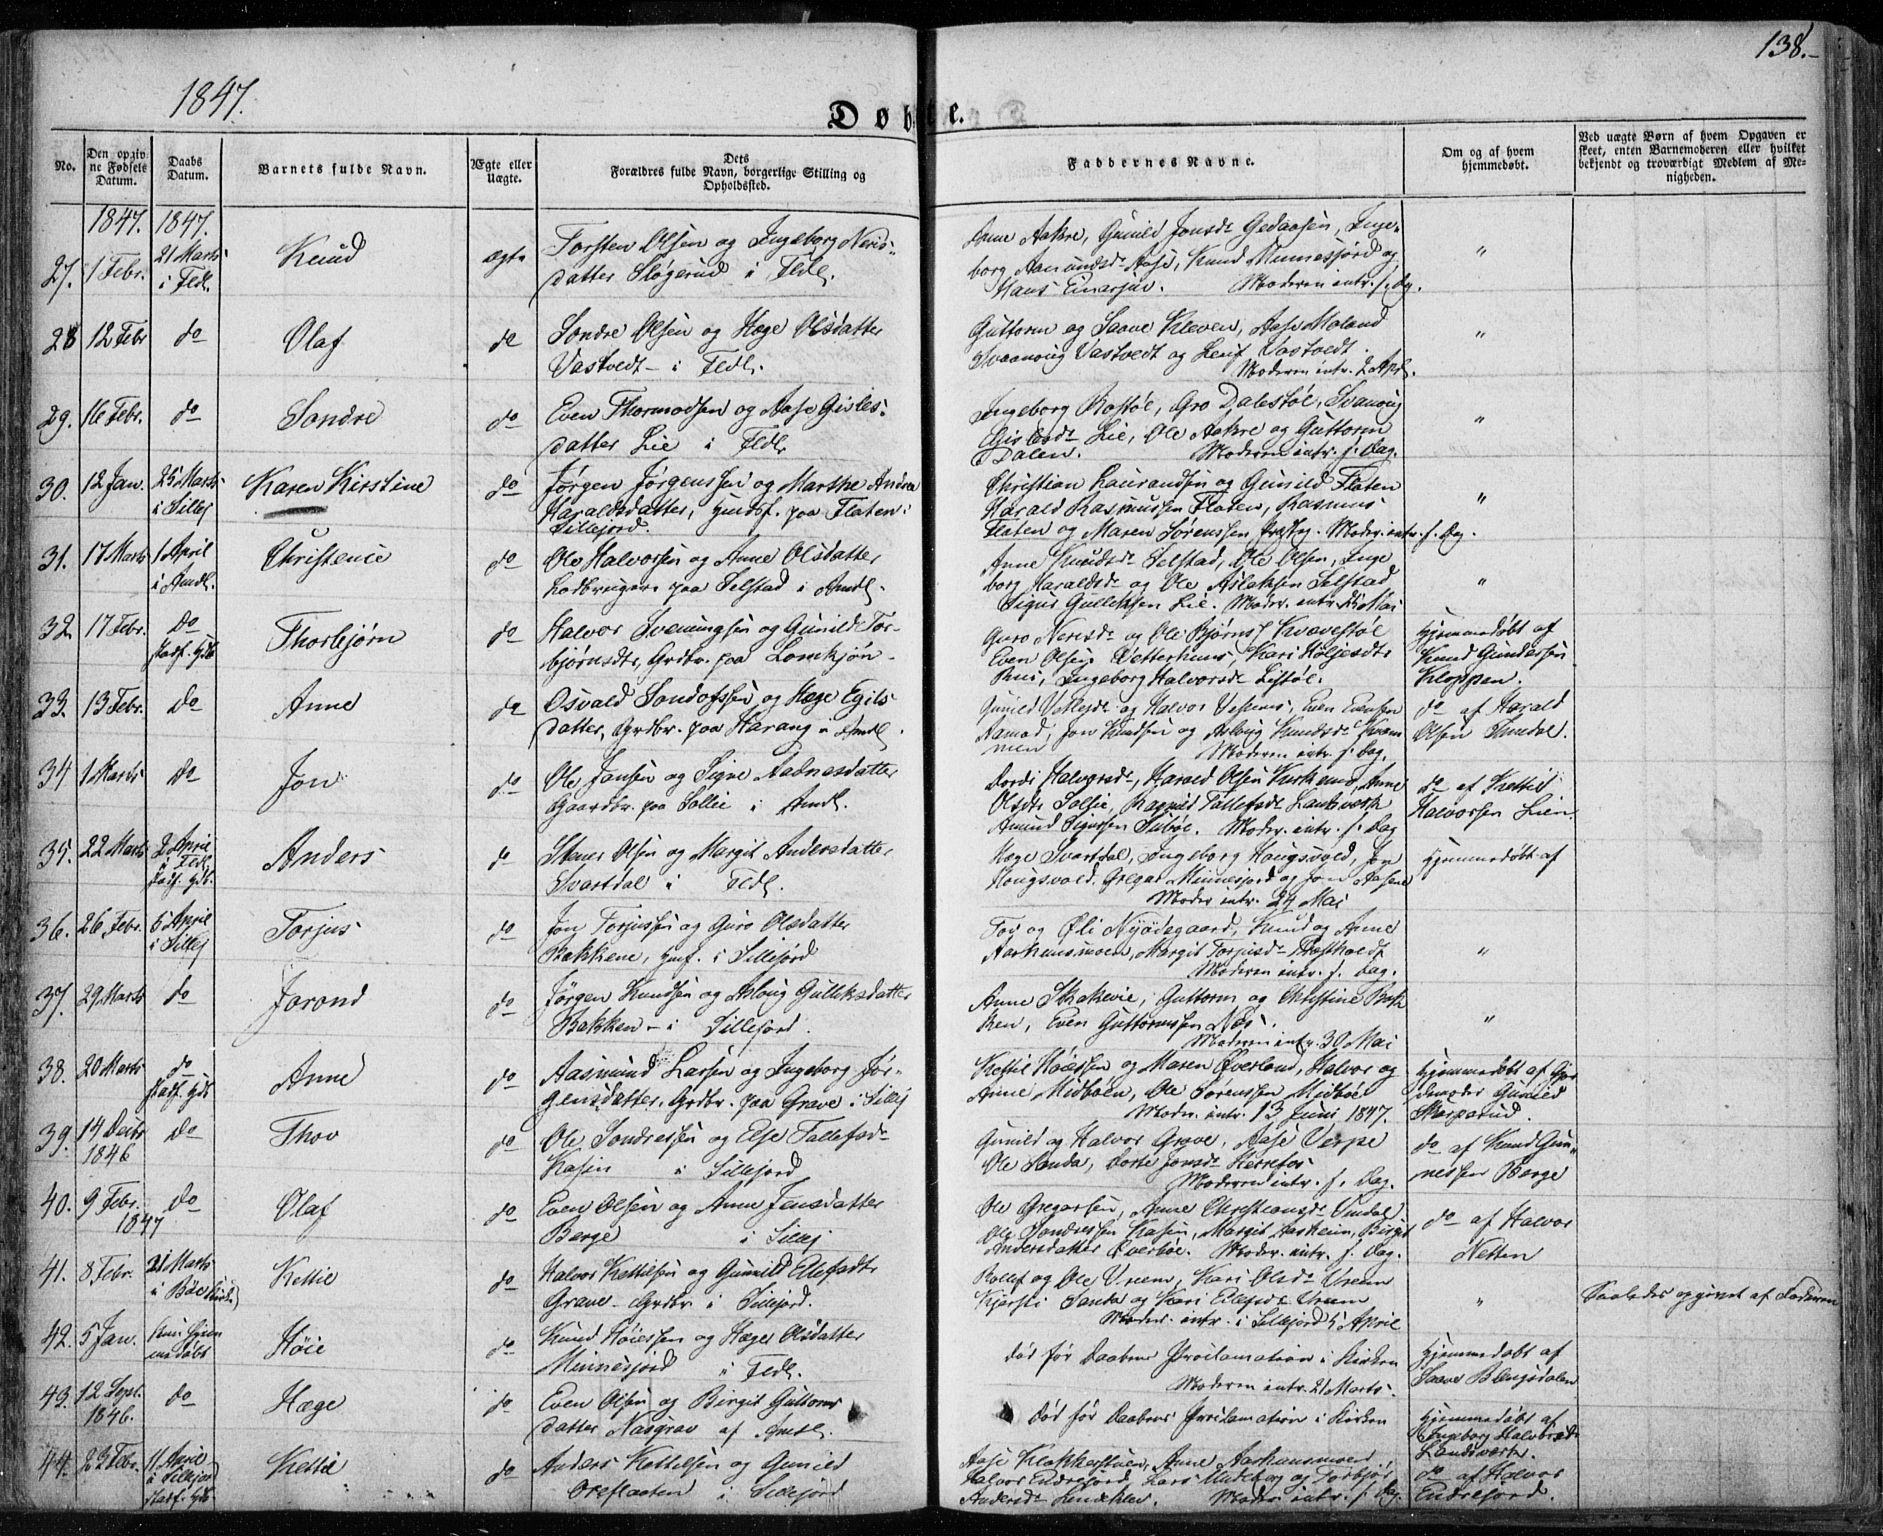 138.
1847.
Døbte.
No.
Den opgivne Fødsels Datum.
Daabs Datum.
Barnets fulde Navn.
Ægte eller Uægte.
Dets Forældres fulde Navn, borgerlige Stilling og Opholdssted.
Faddernes Navne.
Om og af hvem hjemmedøbt.
Ved uægte Børn af hvem Opgaven er skeet, enten Barnemoderen eller hvilket bekjendt og troværdigt Medlem af Menigheden.
1847. 1847.
27. 1 Febr. 21 Marts i Fldl. Knud ægte Torsten Olsen og Ingeborg Neris-
datter Sløgerud i Fldl.
Anne Aakre, Gunild Jonsdr Gedaasen, Inge-
borg Aamundsdr Aase, Knud Minnesjord og
Hans Einarsjuv. Moderen intr. s. Dag. "
28 12 Febr do Olaf do Sondre Olsen og Hæge Olsdatter
Vastvedt - i Fldl.
Guttorm og Saave Kleven, Aase Moland
Svaanoug Vastvedt og Leif Vastvedt.
Moderen intr. 2 Apr. "
29. 16 Febr. do Sondre do Even Thormodsen og Aase Gisles-
datter Lie i Fldl.
Ingeborg Rostøl, Gro Dalestøl, Svanoug
Gislesdr Lie, Ole Aakre og Guttorm
Dalen. Moderen intr. s. Dag. "
30. 12 Jan. 25 Marts i Sillej Karen Kirstine do Jørgen Jørgenssen og Marthe Andrea
Haraldsdatter, Huusf. paa Flaten i
Sillejord.
Christian Laurandsen og Gunild Flaten
Harald Rasmussen Flaten, Rasmus
Flaten og Maren Sørenssen Moder. intr. s. Dag. "
31. 17 Marts 1 April i Amdl. Christence do Ole Halvorsen og Anne Olsdatter
Lodbruger paa Selstad i Amdl.
Anne Knudsdr Selstad, Ole Olsen, Inge
borg Haraldsdr og Ole Aslaksen Selstad
Sigur Gulleksen Lie. Moder. intr. 25 Mai "
32. 17 Febr. do stadf. Hjdb Thorbjørn do Halvor Sveningsen og Gunild Tor-
bjørnsdtr, Grdbr. paa Lomkjøn.
Guro Neresdr og Ole Bjørns. Kvævestøl
Even Olsen Vetterhuus, Kari Holjesdtr
Ingeborg Halvorsdr Listøl.
Hjemmedøbt af
Knud Gundersen
Kloppen.
33. 13 Febr. do Anne do Osvald Sondofssen og Hæge Egils-
datter, Grdbr. paa Harang i Amdl.
Gunild og Halvor Even Evensen
Aamod, Jon Knudsen og Aslaug Knudsdr Kvam
men Moderen intr. s. Dag.
do af Harald
Olsen
34 1 Marts do Jon do Ole Jansen og Signe Aadnesdatter
Gaardbr. paa Sollie i Amdl.
Dordi Halvorsdr, Harald Olsen Kirkeim, Anne
Olsdtr Solfie, Ragnild Tallefsdr Lantsværk
Amund Sigursen Moder. intr. s. Dag
do af Kettil
Halvorssen Lien.
35. 22 Marts 2 April i Fldl. stadf. Hjdb. Anders do Stener Olsen og Margit Andersdatter
Svartdal i Fldl.
Hæge Svartdal, Ingeborg Hougsvold, Jon
Hougsvold, Gregar Minnesjord og Jon Aasene
Moder intr. 24 Mai
Hjemmedøbt af
36. 26 Febr. 5 April i Sillej Torjus do Jon Torjussen og Guro Olsdatter
Bakkene, Huf. i Sillejord
Tov og Øli Nyødegaard, Knud og Anne
Aarhuusmoen, Margit Torjusdr Præstholdt
Moderen intr. s. Dag. "
37. 29 Marts do Jorond do Jørgen Knudsen og Aslaug Gulleksdatter
Bakken - i Sillejord.
Anne Skakevie, Guttorm og Christine Bak
ken, Even Guttormssen Næs.
Moderen intr. 30 Mai "
38. 20 Marts do stadf. Hjdb Anne do Aasmund Larsen og Ingeborg Jør-
gensdatter, Grdbr. paa Grave i Sillej
Kettil Høiessen og Maren Øverland, Halvor og
Anne Midbøen, Ole Sørenssen Midbøe
Modr. intr. 13 Juni 1847.
Hjemmedøbt af Gjor
demoder Gunild
39. 14 Decbr 1846 do Thov do Ole Sondressen og Else Tallefsdr
Kasin i Sillejord
Gunild og Halvor Grave, Aase Verpe
Ole Sanda, Dorte Jonsdr
Moderen intr. s. Dag.
do af Knud Gun-
nessen Berge
40. 9 Febr. 1847 do Olaf do Even Olsen og Anne Jensdatter
Berge i Sillej
Ole Gregarsen, Anne Christiansdr Vindal
Ole Sondressen Kasin, Margit Aarheim, Birgit
Andersdatter Øverbøe. Moder. intr. s. Dag.
do af Halvor
Netten
41. 8 Febr. 21 Marts i Bøe Kirke Kettil do Halvor Kettilsen og Gunild Ellefsdtr
Grave - Grdbr i Sillejord.
Rollef og Ole Vreim, Kari Olsdr Vreim
Kjersti Sanda og Kari Eilefsdr Vreim
Moder. intr. i Sillejord 5 April
" Saaledes opgivet af Faderen
42. 5 Jan. Hjemmedøbt Høie do Knud Høiessen og Hæge Olsdatter
Minnesjord i Fldl.
Død før Daabens Proclamation i Kirken
Moderen intr. 21 Marts.
Hjemmedøbt af
Saave Blengsdalen
43. 12 Sept. 1846. do Hæge do Even Olsen og Birgit Guttorms
datter Nasgrav af Amdl.
Død før Daabens Proclamation i Kirken
Hjemmedøbt af
Ingeborg Halvorsdr
Landsværk.
44. 23 Febr. 11 April i Sillejord stadf. Hjdb Kettil do Anders Kettilsen og Gunild
Oreflaaten i Sillejord
Aase Klokkerstuen, Anne Aarhuusmoen,
Halvor Endresjord, Lars Mideborg og Torbjør
Andersdr Moder. intr. s. Dag.
do af Halvor
Endresjord.